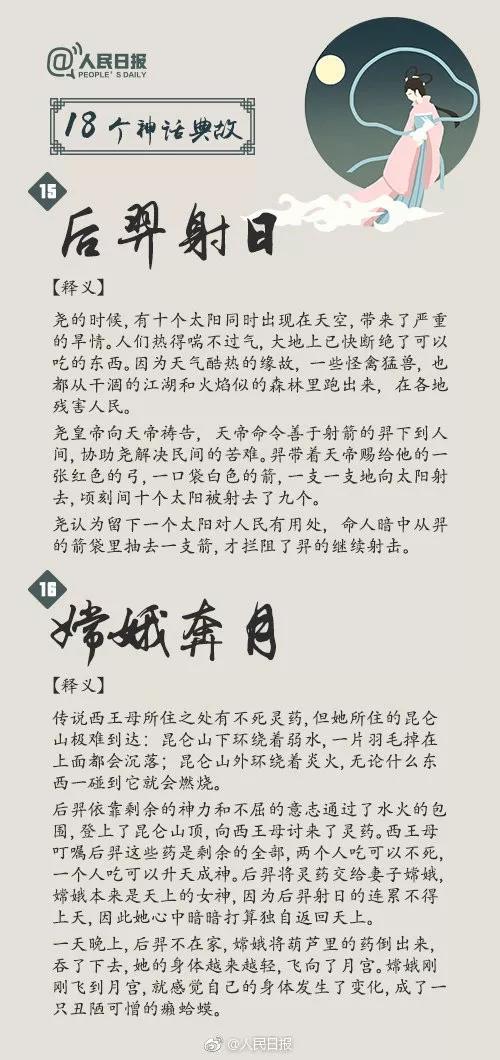 @人民日报
PEOPLE'S DAILY
18个神话典故
15
后羿射日
【释义】
尧的时候,有十个太阳同时出现在天空,带来了严重
的旱情。人们热得喘不过气,大地上已快断绝了可以
吃的东西。因为天气酷热的缘故,一些怪禽猛兽,也
都从干涸的江湖和火焰似的森林里跑出来,在各地
残害人民。
尧皇帝向天帝祷告,天帝命令善于射箭的羿下到人
间,协助尧解决民间的苦难。羿带着天帝赐给他的一
张红色的弓,一口袋白色的箭,一支一支地向太阳射
去,顷刻间十个太阳被射去了九个。
尧认为留下一个太阳对人民有用处,命人暗中从羿
的箭袋里抽去一支箭,才拦阻了羿的继续射击。
16
嫦娥奔月
【释义】
传说西王母所住之处有不死灵药,但她所住的昆仑
山极难到达:昆仑山下环绕着弱水,一片羽毛掉在
上面都会沉落;昆仑山外环绕着炎火,无论什么东
西一碰到它就会燃烧。
后羿依靠剩余的神力和不屈的意志通过了水火的包
围,登上了昆仑山顶,向西王母讨来了灵药。西王母
叮嘱后羿这些药是剩余的全部,两个人吃可以不死,
一个人吃可以升天成神。后羿将灵药交给妻子嫦娥,
嫦娥本来是天上的女神,因为后羿射日的连累不得
上天,因此她心中暗暗打算独自返回天上。
一天晚上,后羿不在家,嫦娥将葫芦里的药倒出来,
吞了下去,她的身体越来越轻,飞向了月宫。嫦娥刚
刚飞到月宫,就感觉自己的身体发生了变化,成了一
只丑陋可憎的癞蛤蟆。
@人民日报